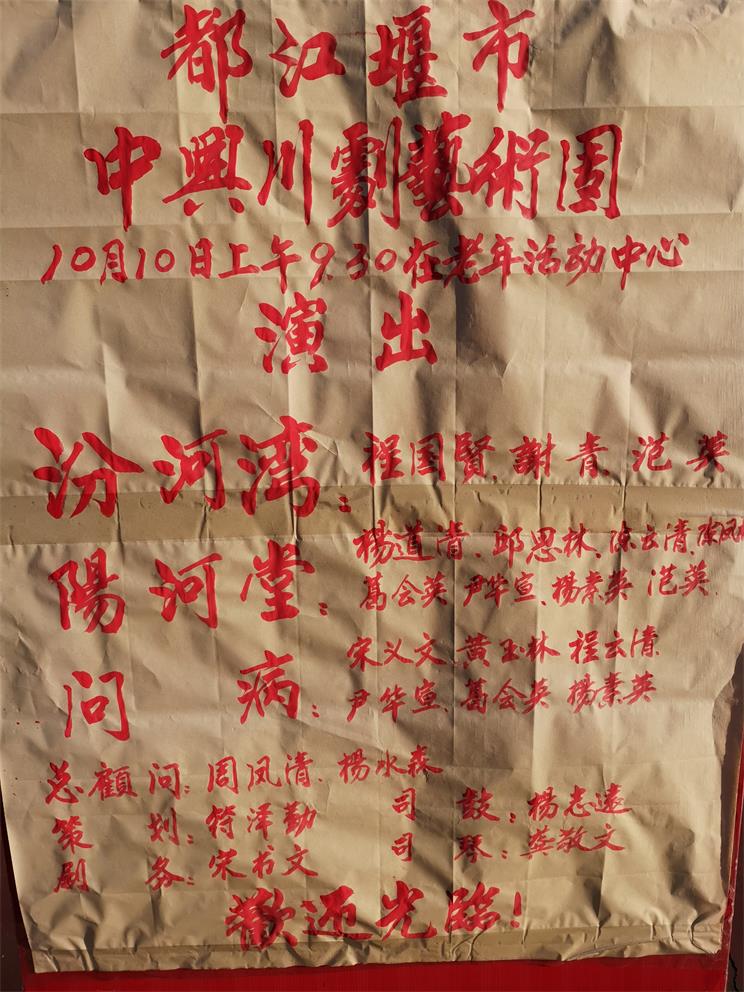 都江堰市
中興川劇藝術团
10月10日上午9.30在老年活动中心
演出
汾河湾：程国賢、謝青、范英
楊道清、邱思林、陈云清、陈凤
陽河堂：葛会英、尹华宣、楊素英、范英、
宋义文、黄玉林、程云清、
问病：尹华宣、葛会英、楊素英
总顧问：周凤清、楊水森
策划：符泽勤 司鼓：楊志遠
剧务：宋书文 司琴：龚敬文
歡迎光臨！